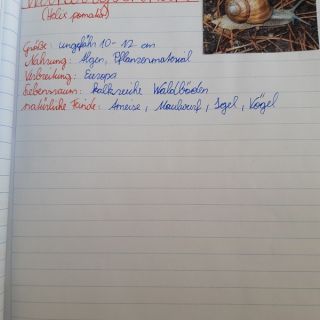 (Helix pomatia)
Größe: ungefähr 10-12 cm
Nahrung: Algen, Pflanzenmaterial
Verbreitung: Europa
Lebensraum: kalkreiche Waldböden
natürliche Feinde: Ameise, Maulwurf, Igel, Vögel